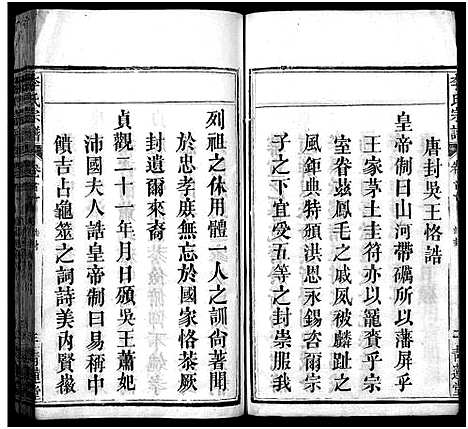 李氏宗譜
唐封吳王恪誥
皇帝制曰山河帶礪所以藩屏乎
王家茅土冊封式以寵賚乎宗
室眷茲鳳毛之戚夙被麟趾之
風鉅典特頒洪恩永錫咨爾宗
子之下宜受五等之封崇服我
列祖之休用體一人之訓尚著聞
於忠孝庶無忘於國家恪茶厥
封遺爾來裔
貞觀二十一年月日頒吳王蕭妃
沛國夫人誥皇帝制曰
饋吉占龜筮之詞詩美内賢徽
李氏宗譜